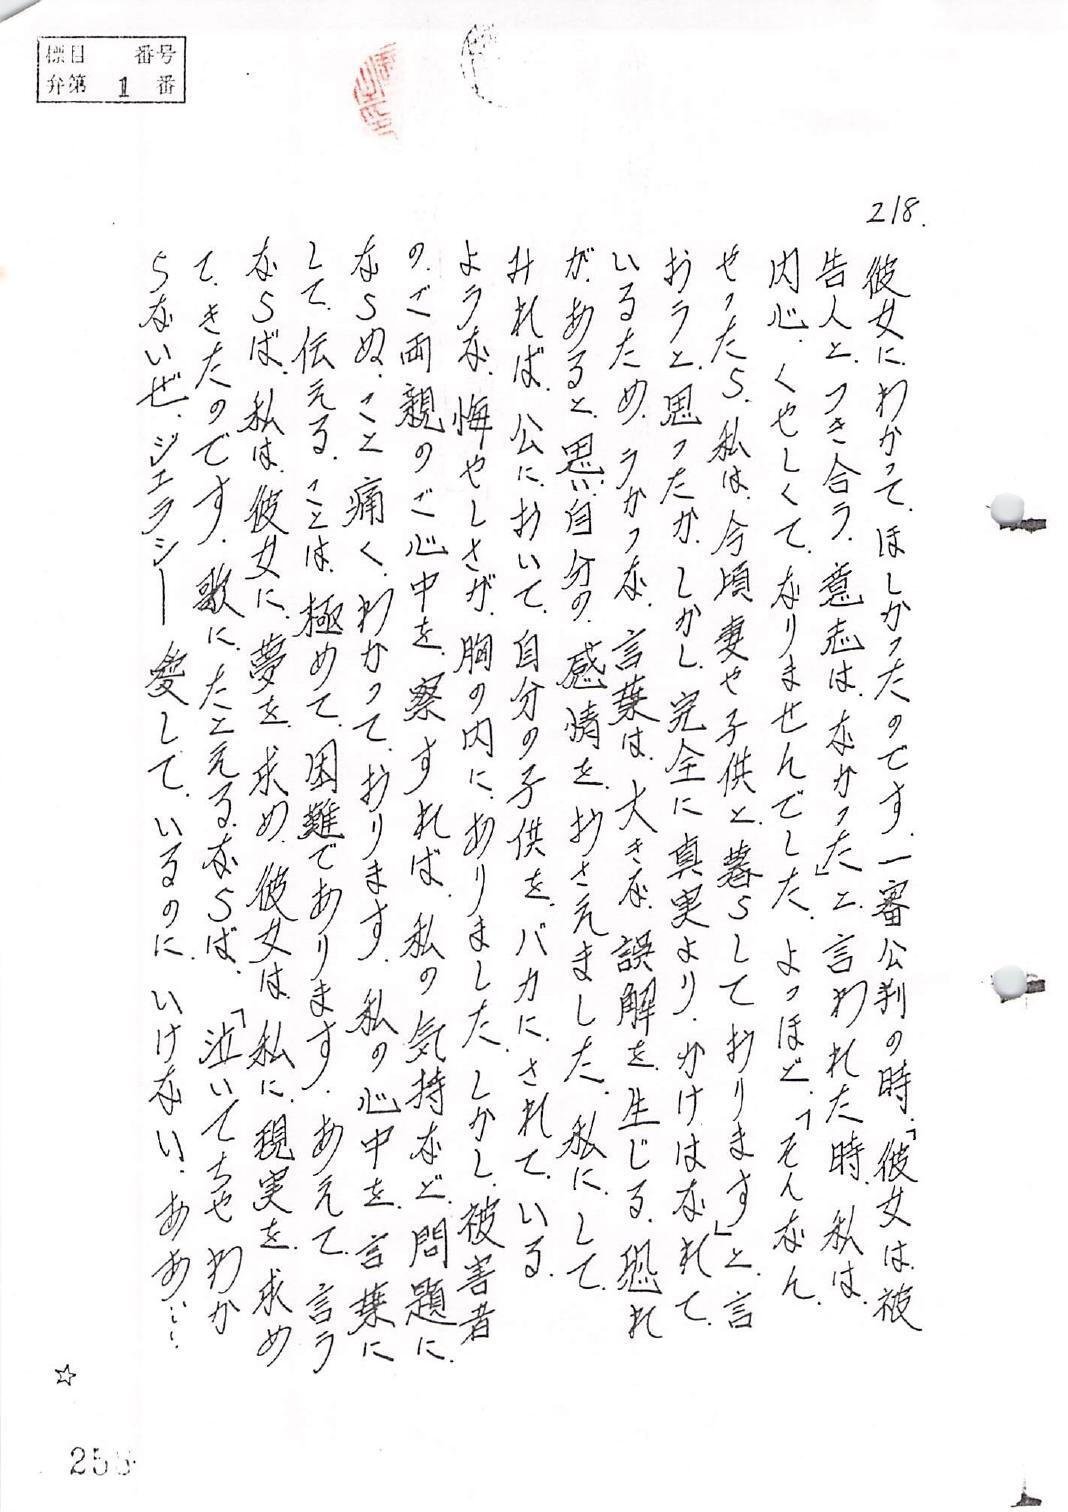 標目 番号
弁第 1 番
218.
彼女にわかって、ほしかったのです。一審公判の時、「彼女は、被
告人と、つき合う、意志は、なかった」と、言われた時、私は、
内心、くやしくて、なりませんでした。よっぽど、「そんなん、
やったら、私は、今頃妻や子供と、暮らしており ます」と、言
おうと、思ったが、しかし、完全に真実より、かけはなれて、
いるため、うかつな、言葉は、大きな、誤解を、生じる、恐れ
が、あると、思い、自分の、感情を、おさえました。私に、して、
みれば、公に、おいて、自分の子供を、バカに、されて、いる、
ような、悔やしさが、胸の内に、ありました。しかし、被害者
の、ご両親のご心中を、察すれば、私の気持など、問題に、
ならぬ、こと、痛く、わかって、おります。私の心中を、言葉に
して、伝える、ことは、極めて、困難であります。あえて、言う
ならば、私は、彼女に、夢を、求め、彼女は、私に、現実を、求め
て、きたのです。歌に、たとえる、ならば、「泣いてちゃ わか
らないぜ、ジェラシー 愛して、いるのに、いけない、ああ…
☆